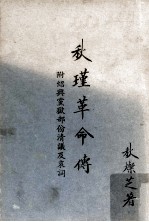 秋瑾革命傳
附紹興黨獄部份清議及哀詞
秋燦芝著